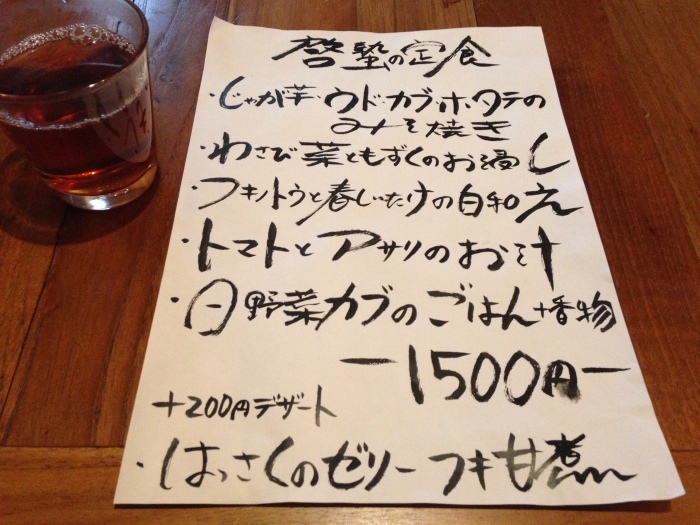 啓蟄の定食
・じゃが芋・ウド・カブ・ホタテの
みそ焼き
・わさび菜ともずくのお浸し
・フキノトウと春しいたけの白和え
・トマトとアサリのお汁
・日野菜カブのごはん+香物
ー1500円ー
+200円デザート
・はっさくのゼリー フキ甘煮